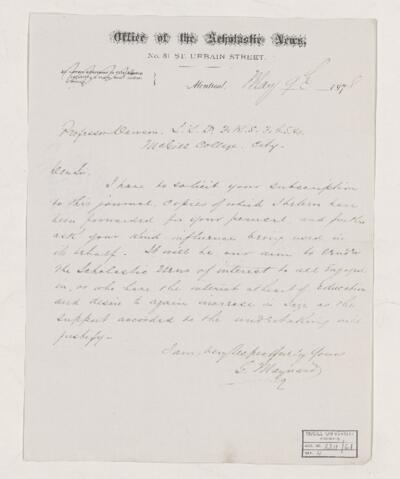 Office of the Scholastic News,
No. 81 ST. URBAIN STREET.
Montreal, May 9th 1878
Professor Dawson, L.L.D. F.R.S. F.G.S.
McGill College, City.
Dr Sir.
I have to solicit your subscription
to this journal, copies of which I believe have
been forwarded for your perusal, and further
ask your kind influence being used in
its behalf. It will be our aim to render
the Scholastic News of interest to all engaged
in, or who have the interest at heart of Education
and desire to again increase in size as the
support accorded to the undertaking will
justify.
I am, very respectfully Yours
G. Maynard
McGILL UNIVERSITY
ARCHIVES
ACC. NO.
REF.